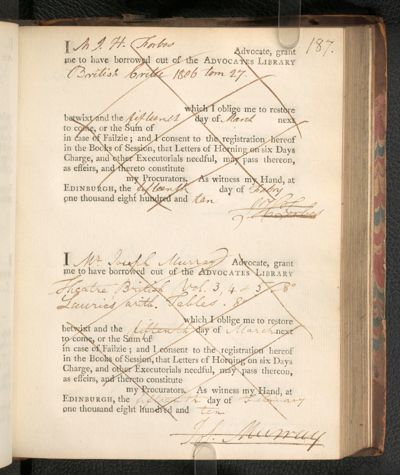 187.
I Mr J. H. Forbes Advocate, grant
me to have borrowed out of the ADVOCATES LIBRARY
British Critic 1806 tom 27.
which I oblige me to restore
betwixt and the fifteenth day of March next
to come, or the Sum of
in case of Failzie; and I consent to the registration hereof
in the Books of Session, that Letters of Horning on six Days
Charge, and other Executorials needful, may pass thereon,
as effeirs, and thereto constitute
my Procurators. As witness my Hand, at
EDINBURGH, the fifteenth day of Febry
one thousand eight hundred and ten
I Mr Joseph Murray Advocate, grant
me to have borrowed out of the ADVOCATES LIBRARY
Theatre British Vol. 3, 4 & 5 8o
Lauries Arith. Tables. 8
which I oblige me to restore
betwixt and the fifteenth day of March next
to come, or the Sum of
in case of Failzie; and I consent to the registration hereof
in the Books of Session, that Letters of Horning on six Days
Charge, and other Executorials needful, may pass thereon,
as effeirs, and thereto constitute
my Procurators. As witness my Hand, at
EDINBURGH, the day of February
one thousand eight hundred and ten
Murray